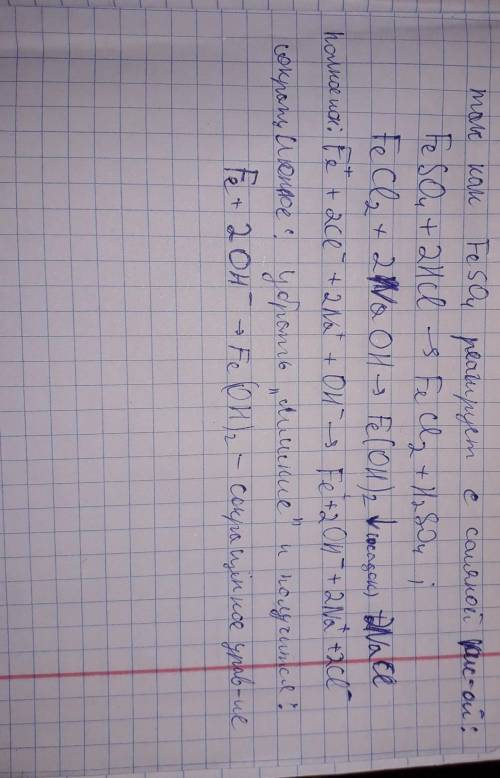 так как FeSO₄ реагирует с соляной кис-ой:
FeSO₄ + 2HCl → FeCl₂ + H₂SO₄ ;
FeCl₂ + 2NaOH → Fe(OH)₂ ↓ (осадок) + 2NaCl
Fe⁺ + 2Cl⁻ + 2Na⁺ + OH⁻ → Fe⁺ + 2OH⁻ + 2Na⁺ + 2Cl⁻
сокращ. ионное: убрать "лишние" и получится:
Fe + 2OH⁻ → Fe(OH)₂ – сокращённое урав-ие